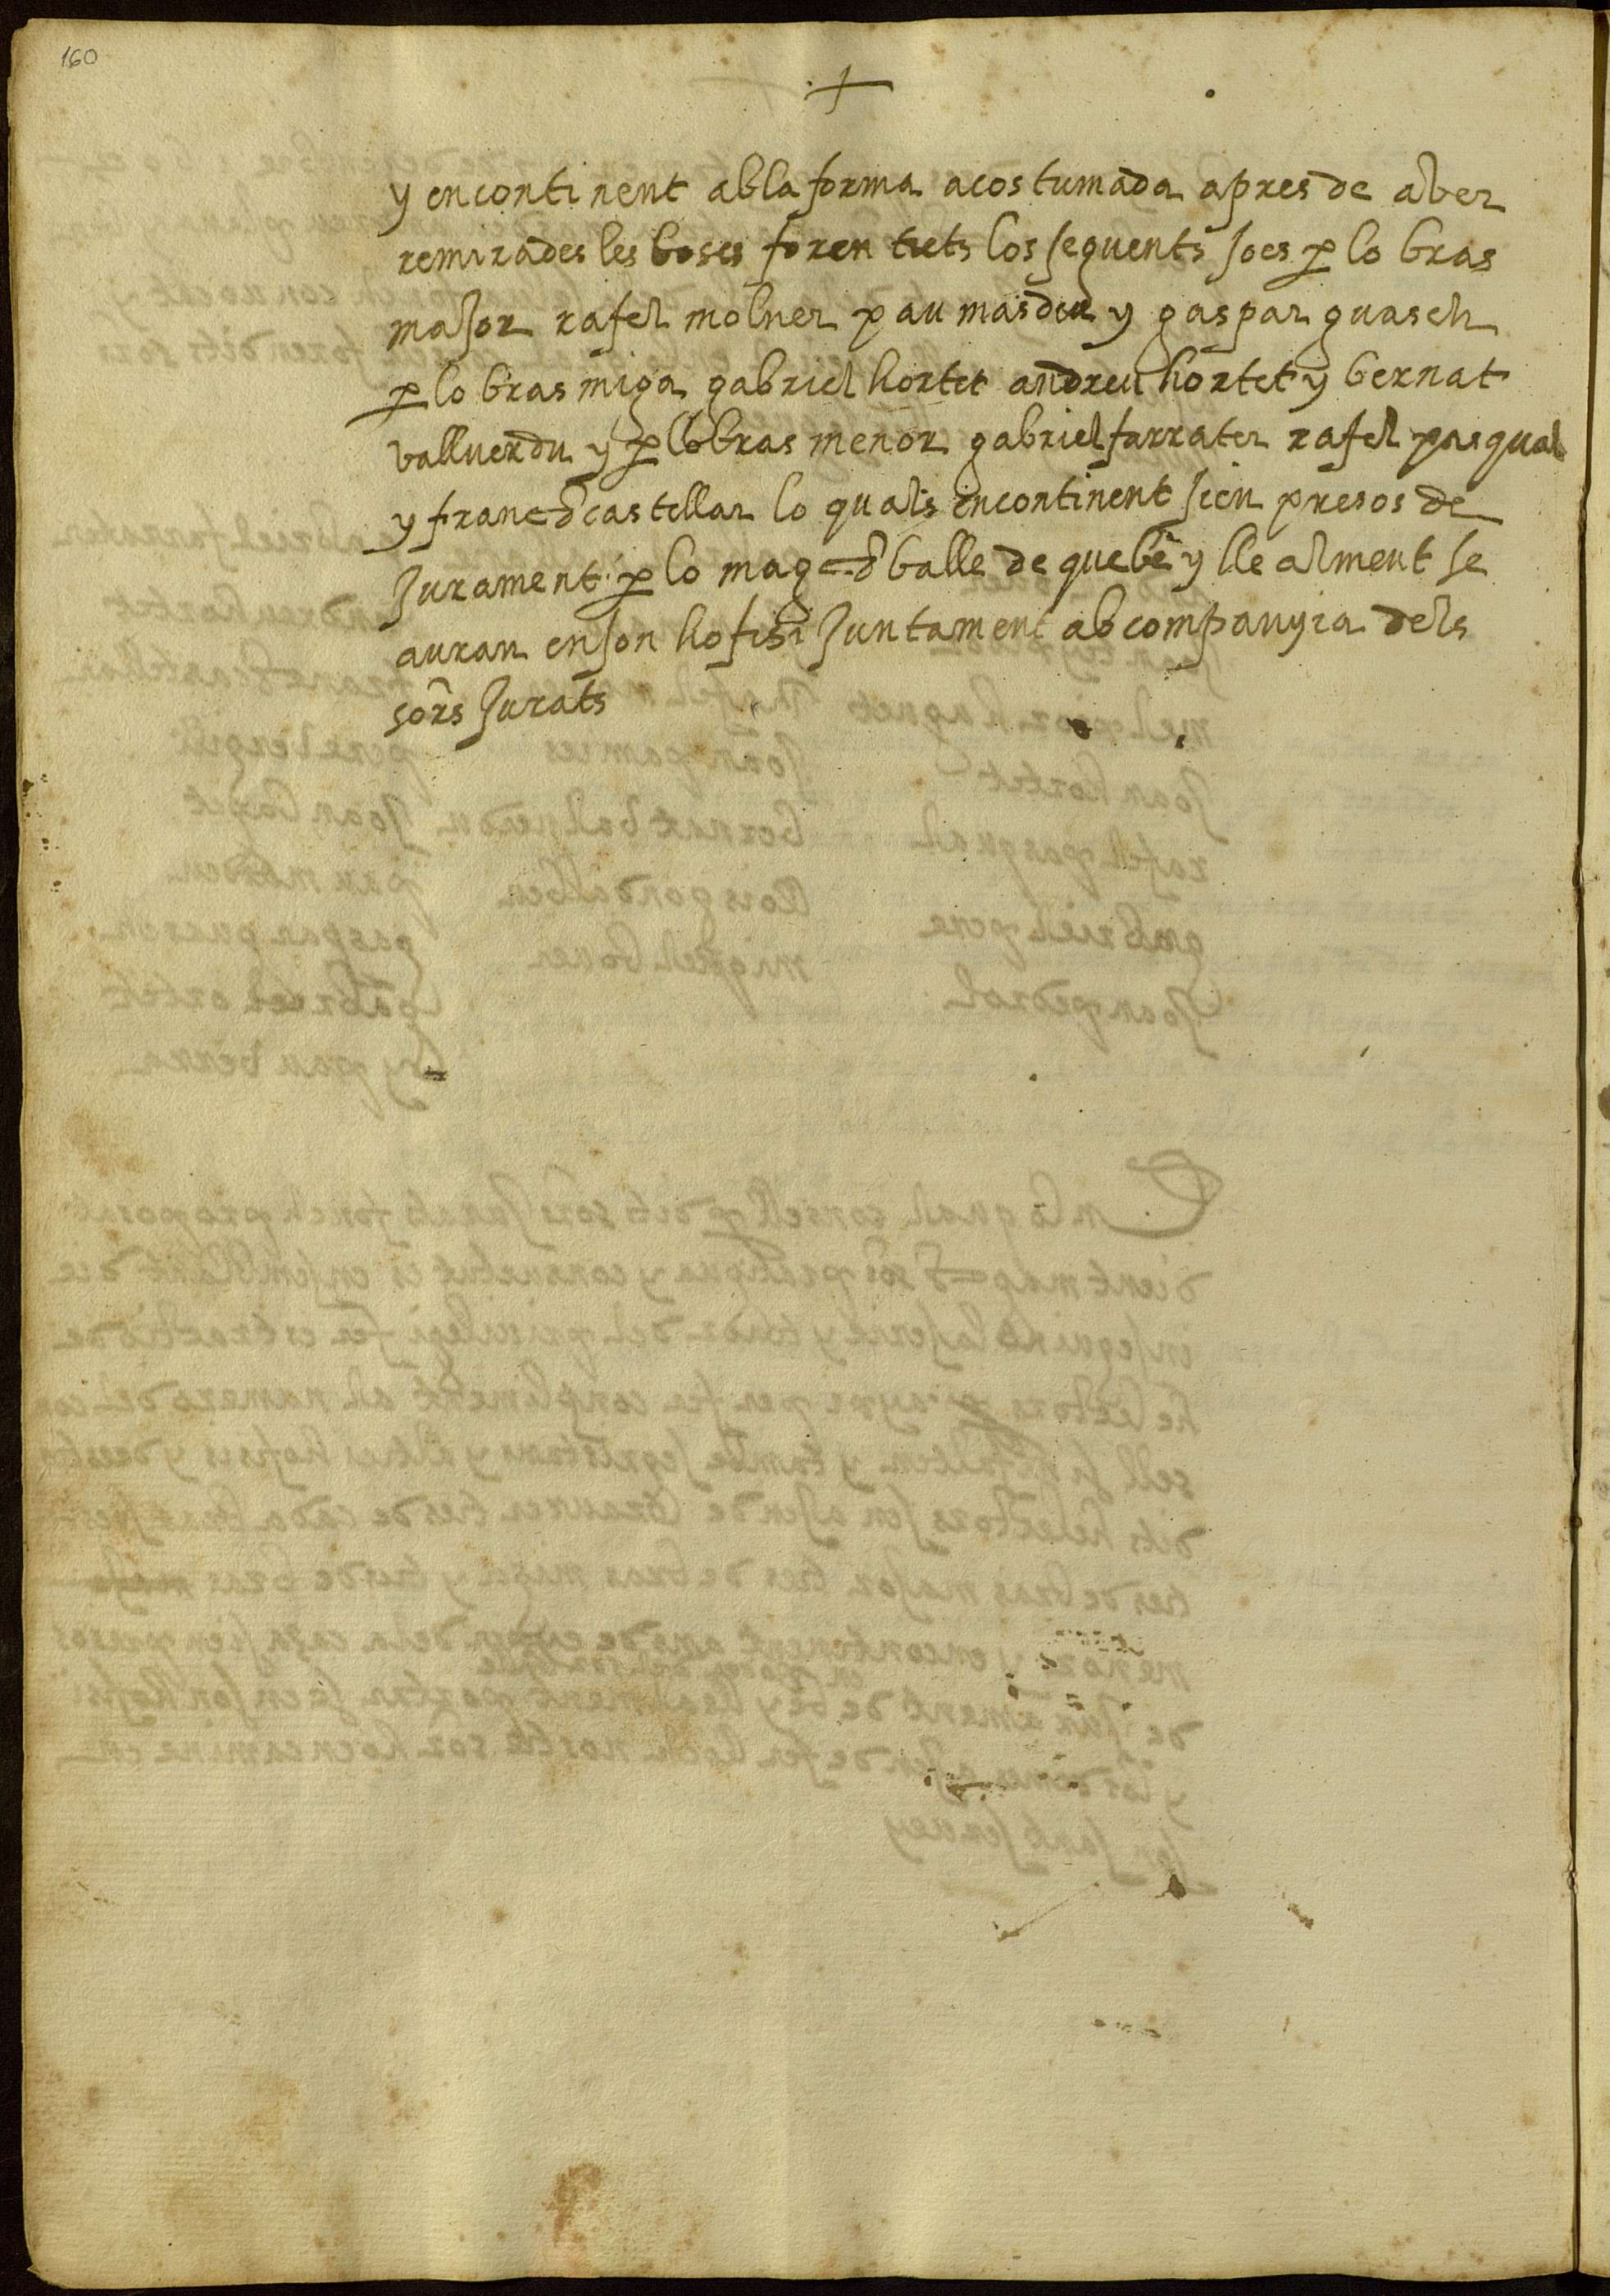 160
y encontinent ab la forma acostumada apres de aber
remirades les boses foren trets los seguents soes p lo bras
major rafel molner pau masdeu y gaspar guasch
p lo bras miga gabriel hortet andreu hortet y bernat
vallverdu y p llo bras menor gabriel farrater rafel pasqual
y franc castellar lo quals encontinent sien presos de
jurament p lo mag balle de que be y llealment se
auran en son hofisi juntament ab companyia dels
sors jurats